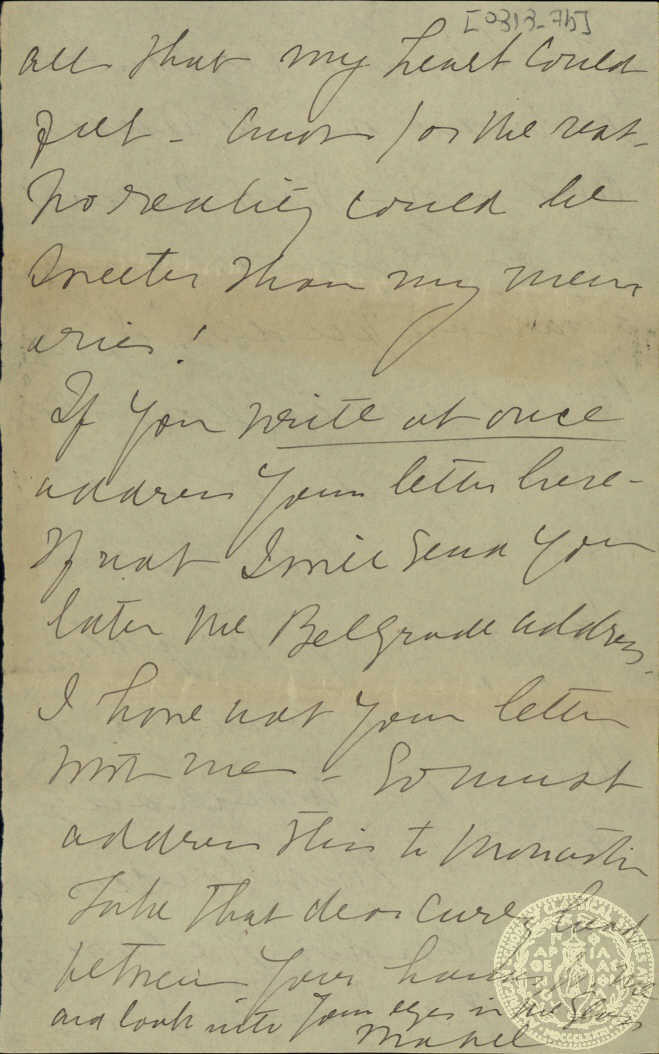 [0313-7b]
all that my heart could
felt - Amot for the rest -
No reality could be
sweeter than my mem
ories!
If you write at once
address your letter here -
If not I will send you
later the Belgrade address.
I have not your letter
with me - So must
address this to Monastir
Take that dear curly head
between your hands for me
and look into your eyes in the glass
Mabel